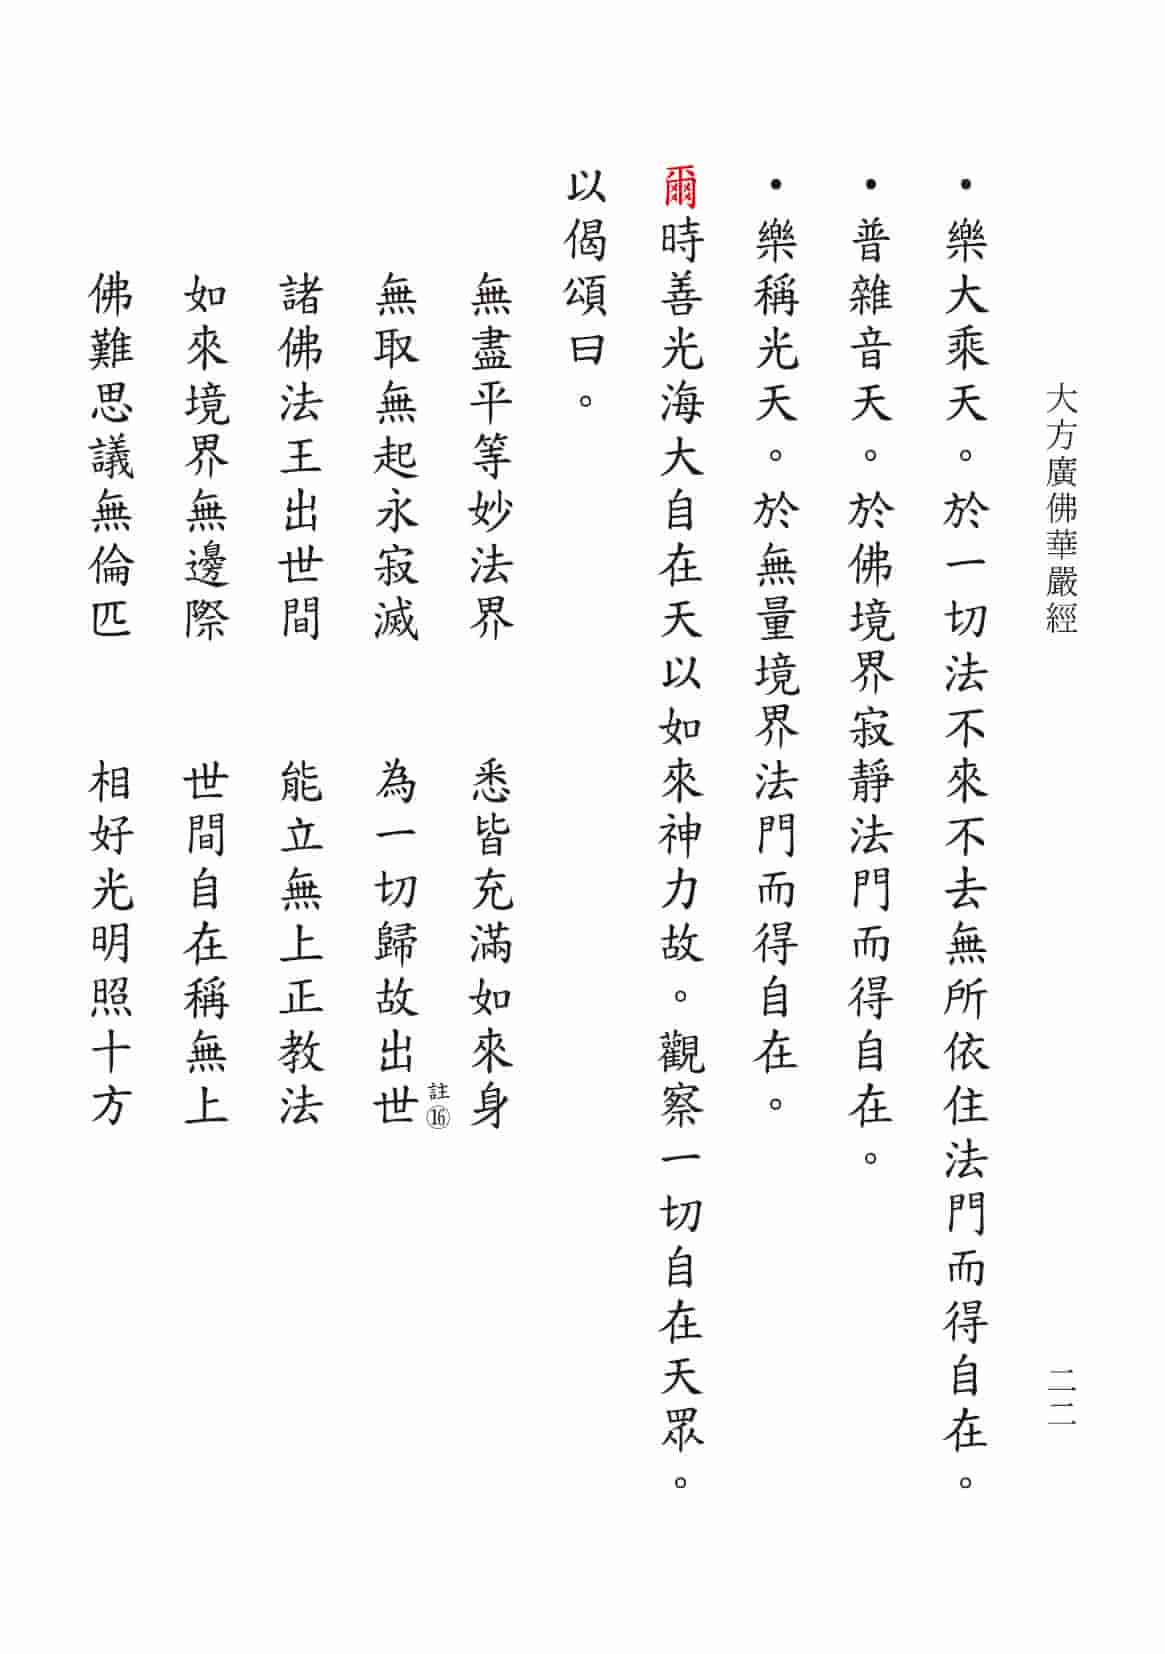 大方廣佛華嚴經
二二
•樂大乘天。於一切法不來不去無所依住法門而得自在。
•普雜音天。於佛境界寂靜法門而得自在。
•樂稱光天。於無量境界法門而得自在。
爾時善光海大自在天以如來神力故。觀察一切自在天眾。
以偈頌曰。
無盡平等妙法界　悉皆充滿如來身
無取無起永寂滅　為一切歸故出世註⑯
諸佛法王出世間　能立無上正教法
如來境界無邊際　世間自在稱無上
佛難思議無倫匹　相好光明照十方